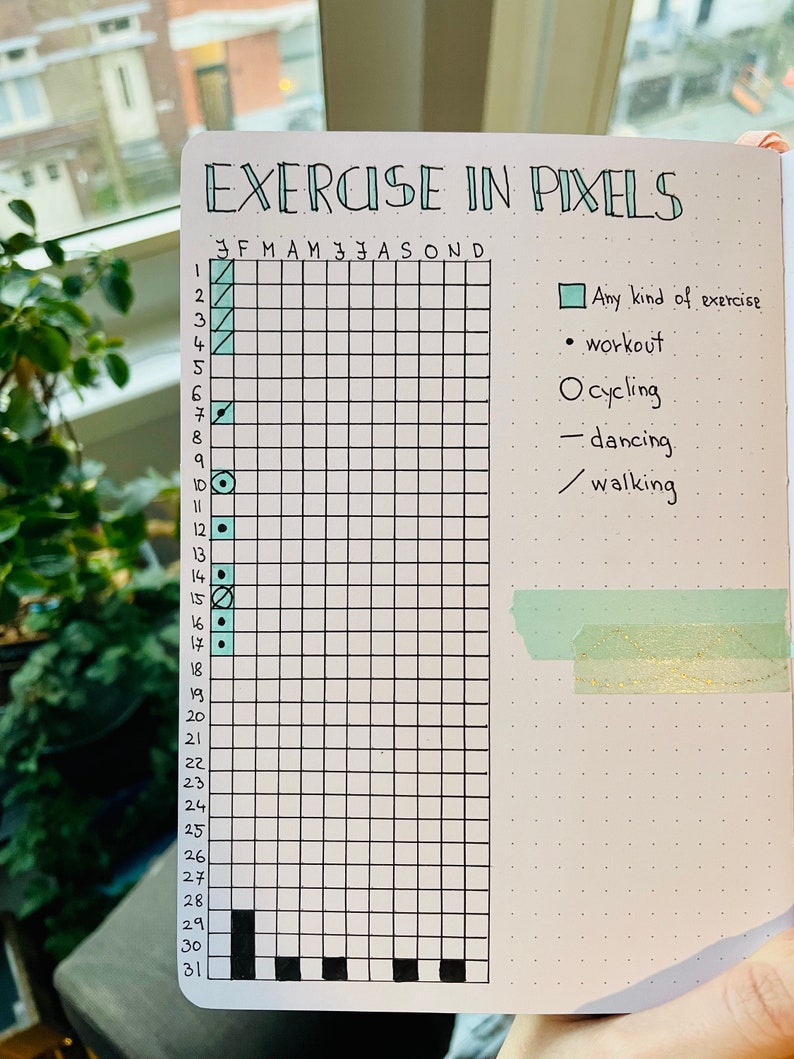 EXERCISE IN PIXELS
J F M A M J J A S O N D
1
2
3
4
5
6
7
8
9
10
11
12
13
14
15
16
17
18
19
20
21
22
23
24
25
26
27
28
29
30
31
Any kind of exercise
workout
cycling
dancing
walking